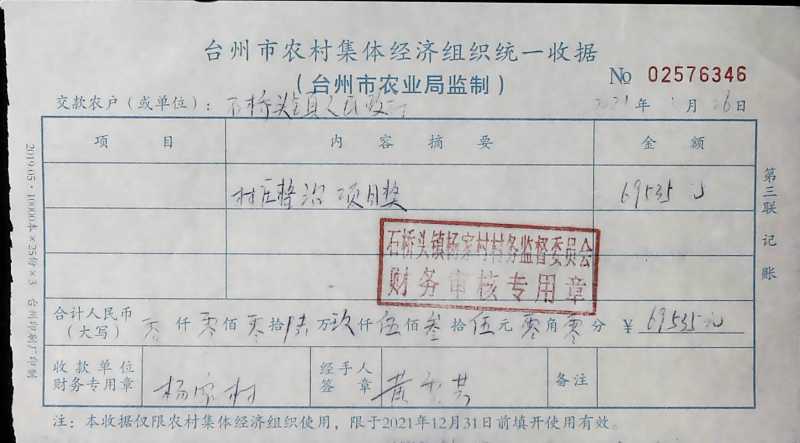 台州市农村集体经济组织统一收据
（台州市农业局监制） No 02576346
交款农户（或单位）：石桥头镇人民政府 2021年 月26日
项 目 内 容 摘 要 金 额
村庄整治项目奖 69535元
石桥头镇杨家村村务监督委员会
财务审核专用章
合计人民币（大写） 零仟零佰零拾陆万玖仟伍佰叁拾伍元零角零分 ￥69535元
收款单位财务专用章 杨家村 经手人签章 黄 备注
注：本收据仅限农村集体经济组织使用，限于2021年12月31日前填开使用有效。
第三联 记账
2019.05·10000本×25份×3 台州印刷厂印制